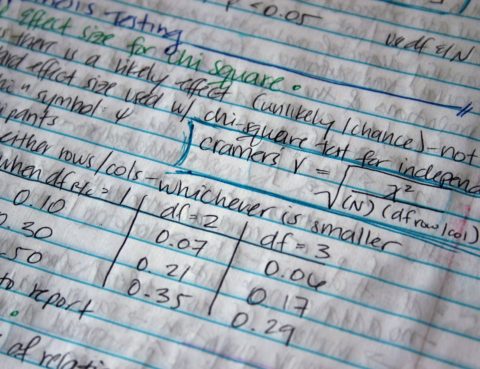 p < 0.05
Testing
use df & N
Effect size for chi square.
there is a likely effect (unlikely / chance) - not
effect size used w/ chi-square test for independ
symbol φ
cramers V = √ x² / (N) (df row/col)
pants
either rows/cols - whichever is smaller
when df = 1 df = 2 df = 3
0.10 0.07 0.06
.30 0.21 0.17
.50 0.35 0.29
to report
of relati